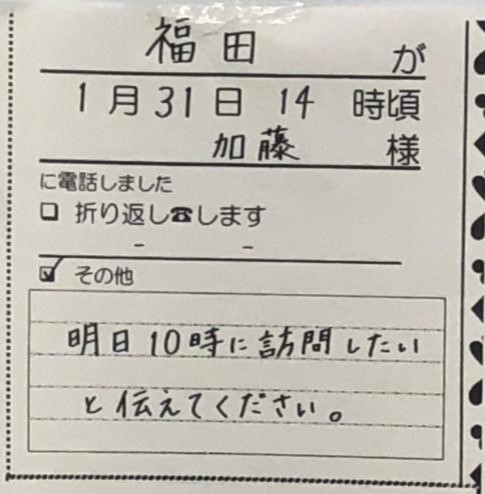 福田 が
1月31日 14 時頃
加藤 様
に電話しました
□ 折り返し☎します
- -
☑ その他
明日10時に訪問したい
と伝えてください。